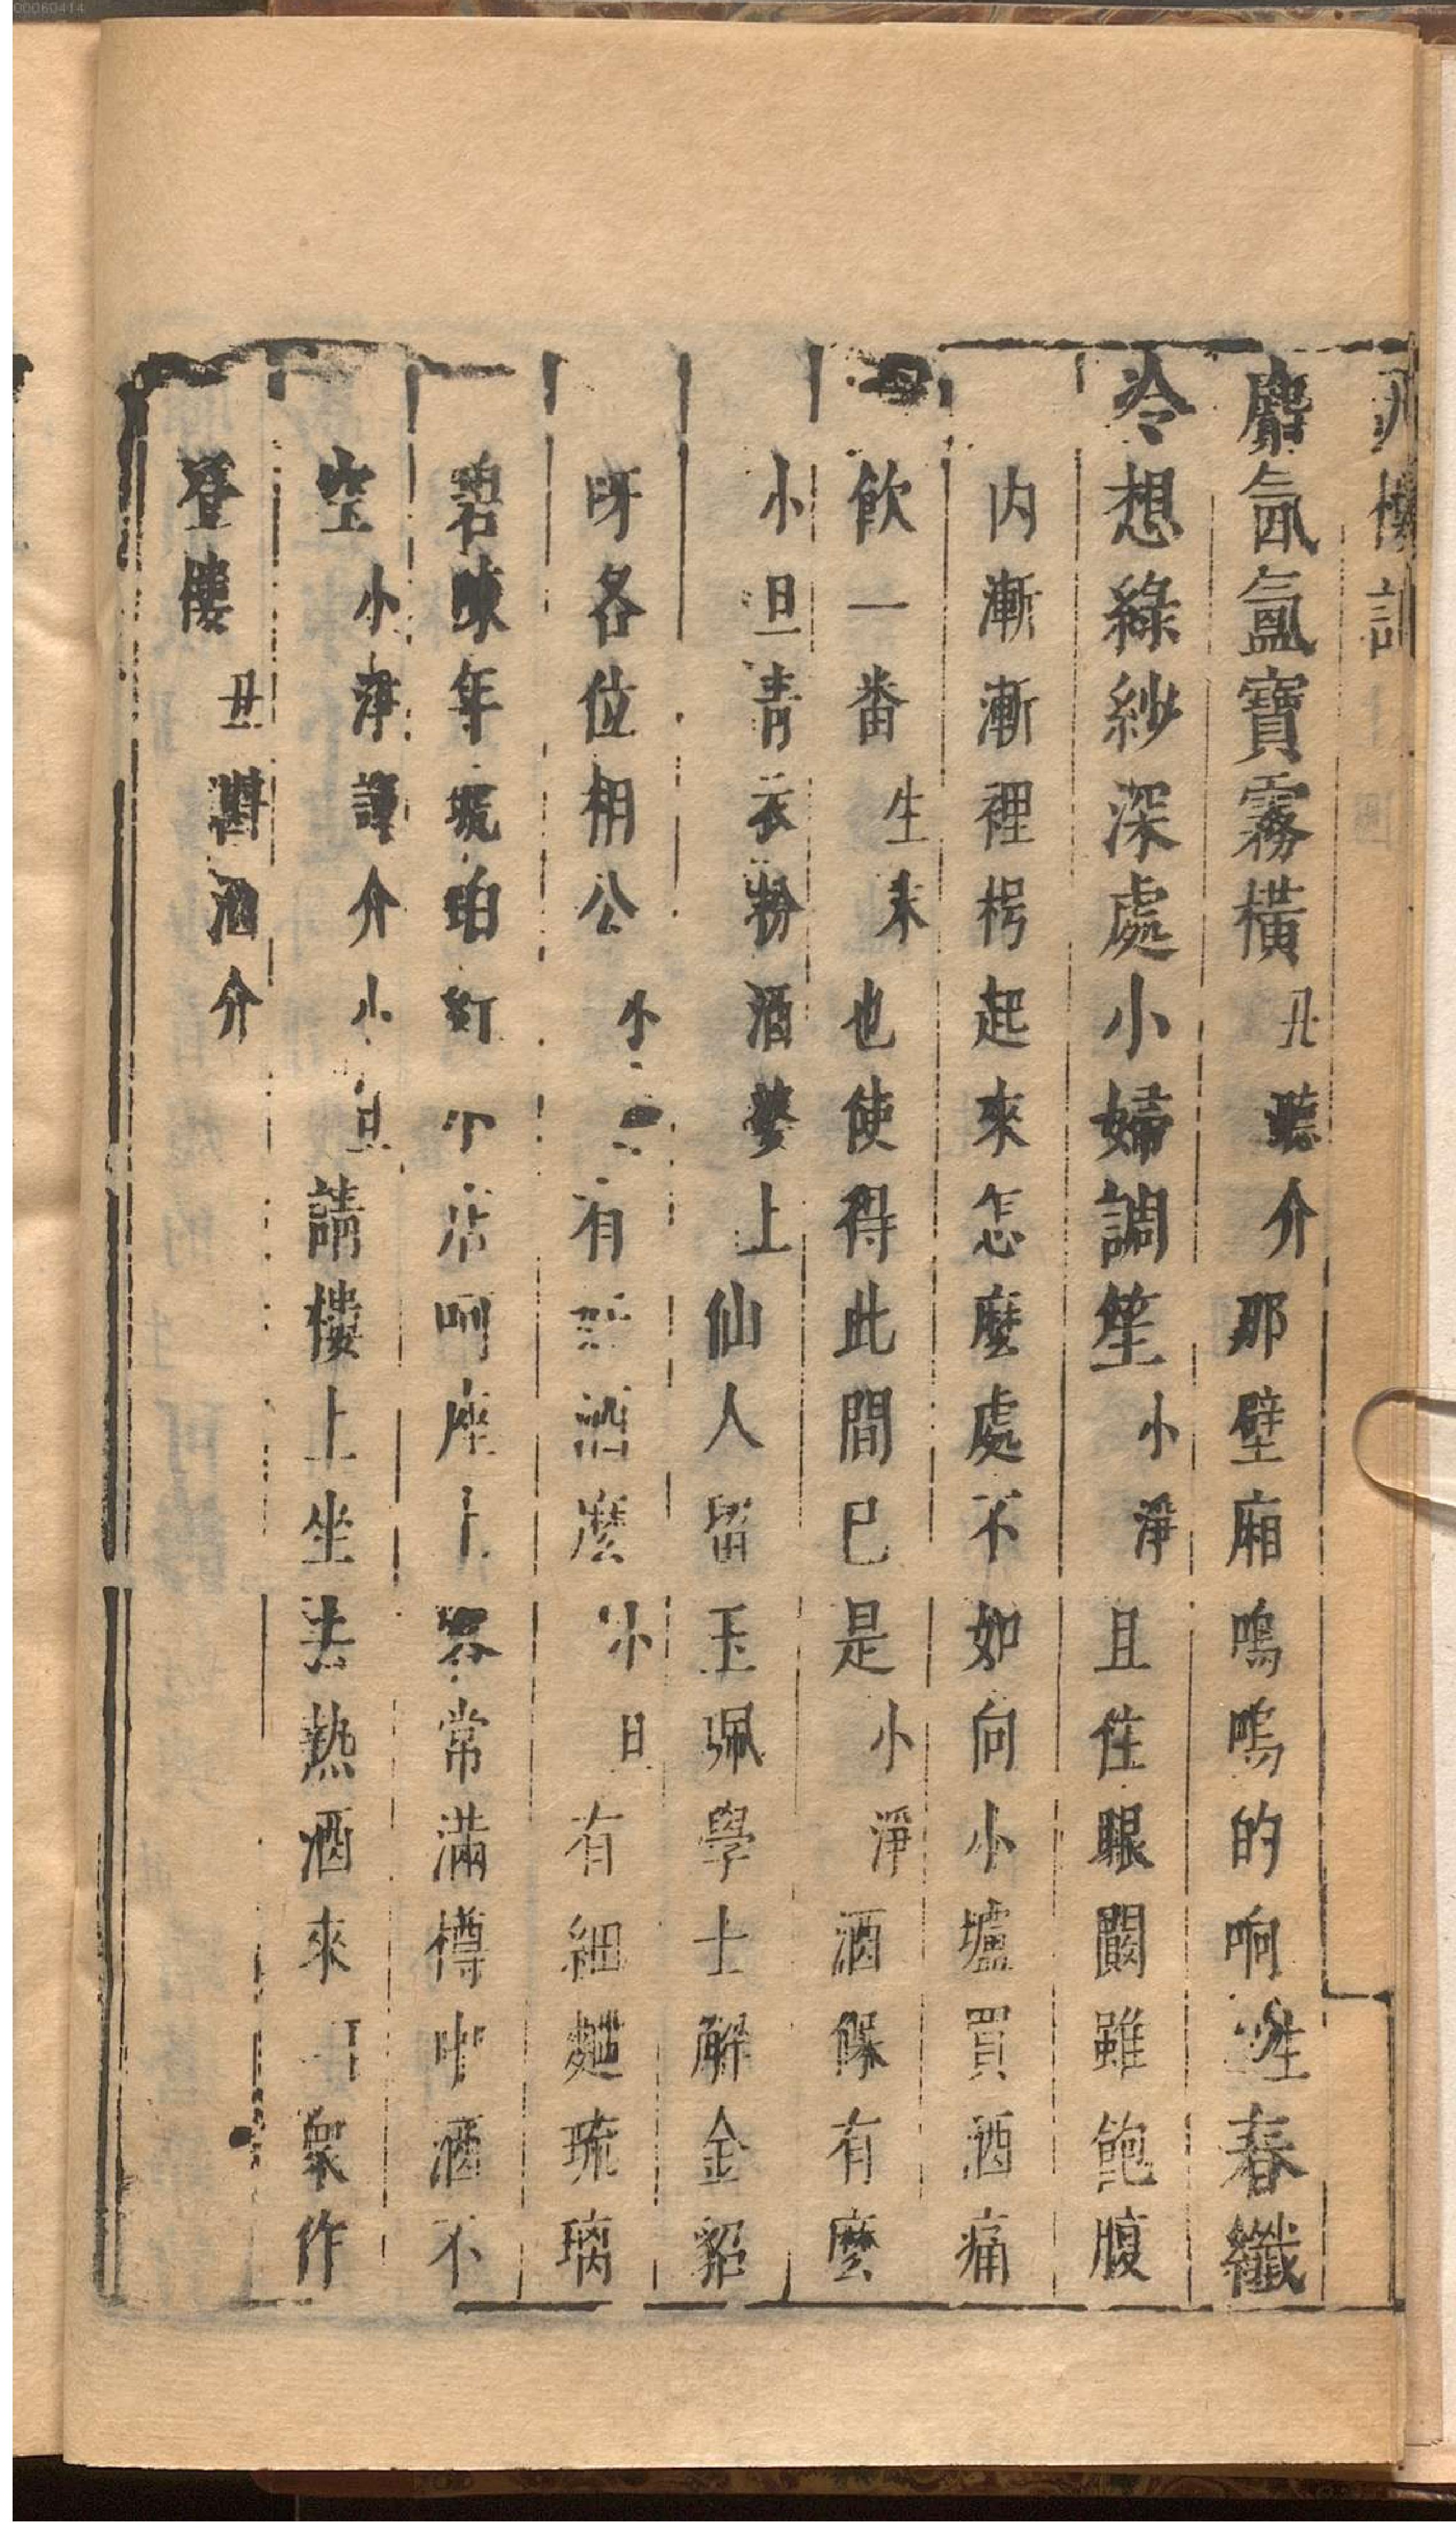 麝氤氳寶霧橫丑聽介那壁廂嗚嗚的响生春纖
冷想綠紗深處小婦調笙小淨且住眼闊雖飽腹
内漸漸裡枵起來怎麼處不如向小壚買酒痛
飲一番生末也使得此間已是小淨酒保有麼
小旦青衣粉酒夢上仙人留玉珮學士解金貂
呀各位相公小有酒麼小旦有細麯琉璃
碧陳年琥珀紅小店呵座上客常滿樽中酒不
空小淨諢介小旦請樓上坐去熱酒來衆作
登樓丑斟酒介
00060414